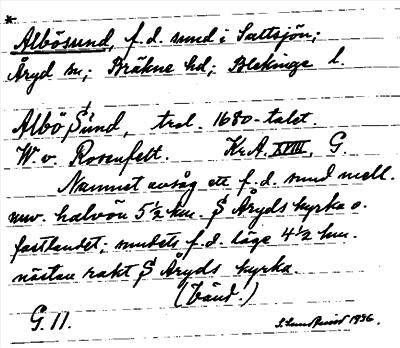 *
Albösund, f. d. sund i Saltsjön;
Åryd sn; Bräkne hd; Blekinge l.
Albö Sund, trol. 1680-talet.
W. v. Rosenfelt. Kr.A. XVIII, G.
Namnet avsåg ett f. d. sund mell.
nuv. halvön 5 ½ km. S Åryds kyrka o.
fastlandet; sundets f. d. läge 4 ½ km.
nästan rakt S Åryds kyrka.
(Vänd.)
G. 11. 1936.